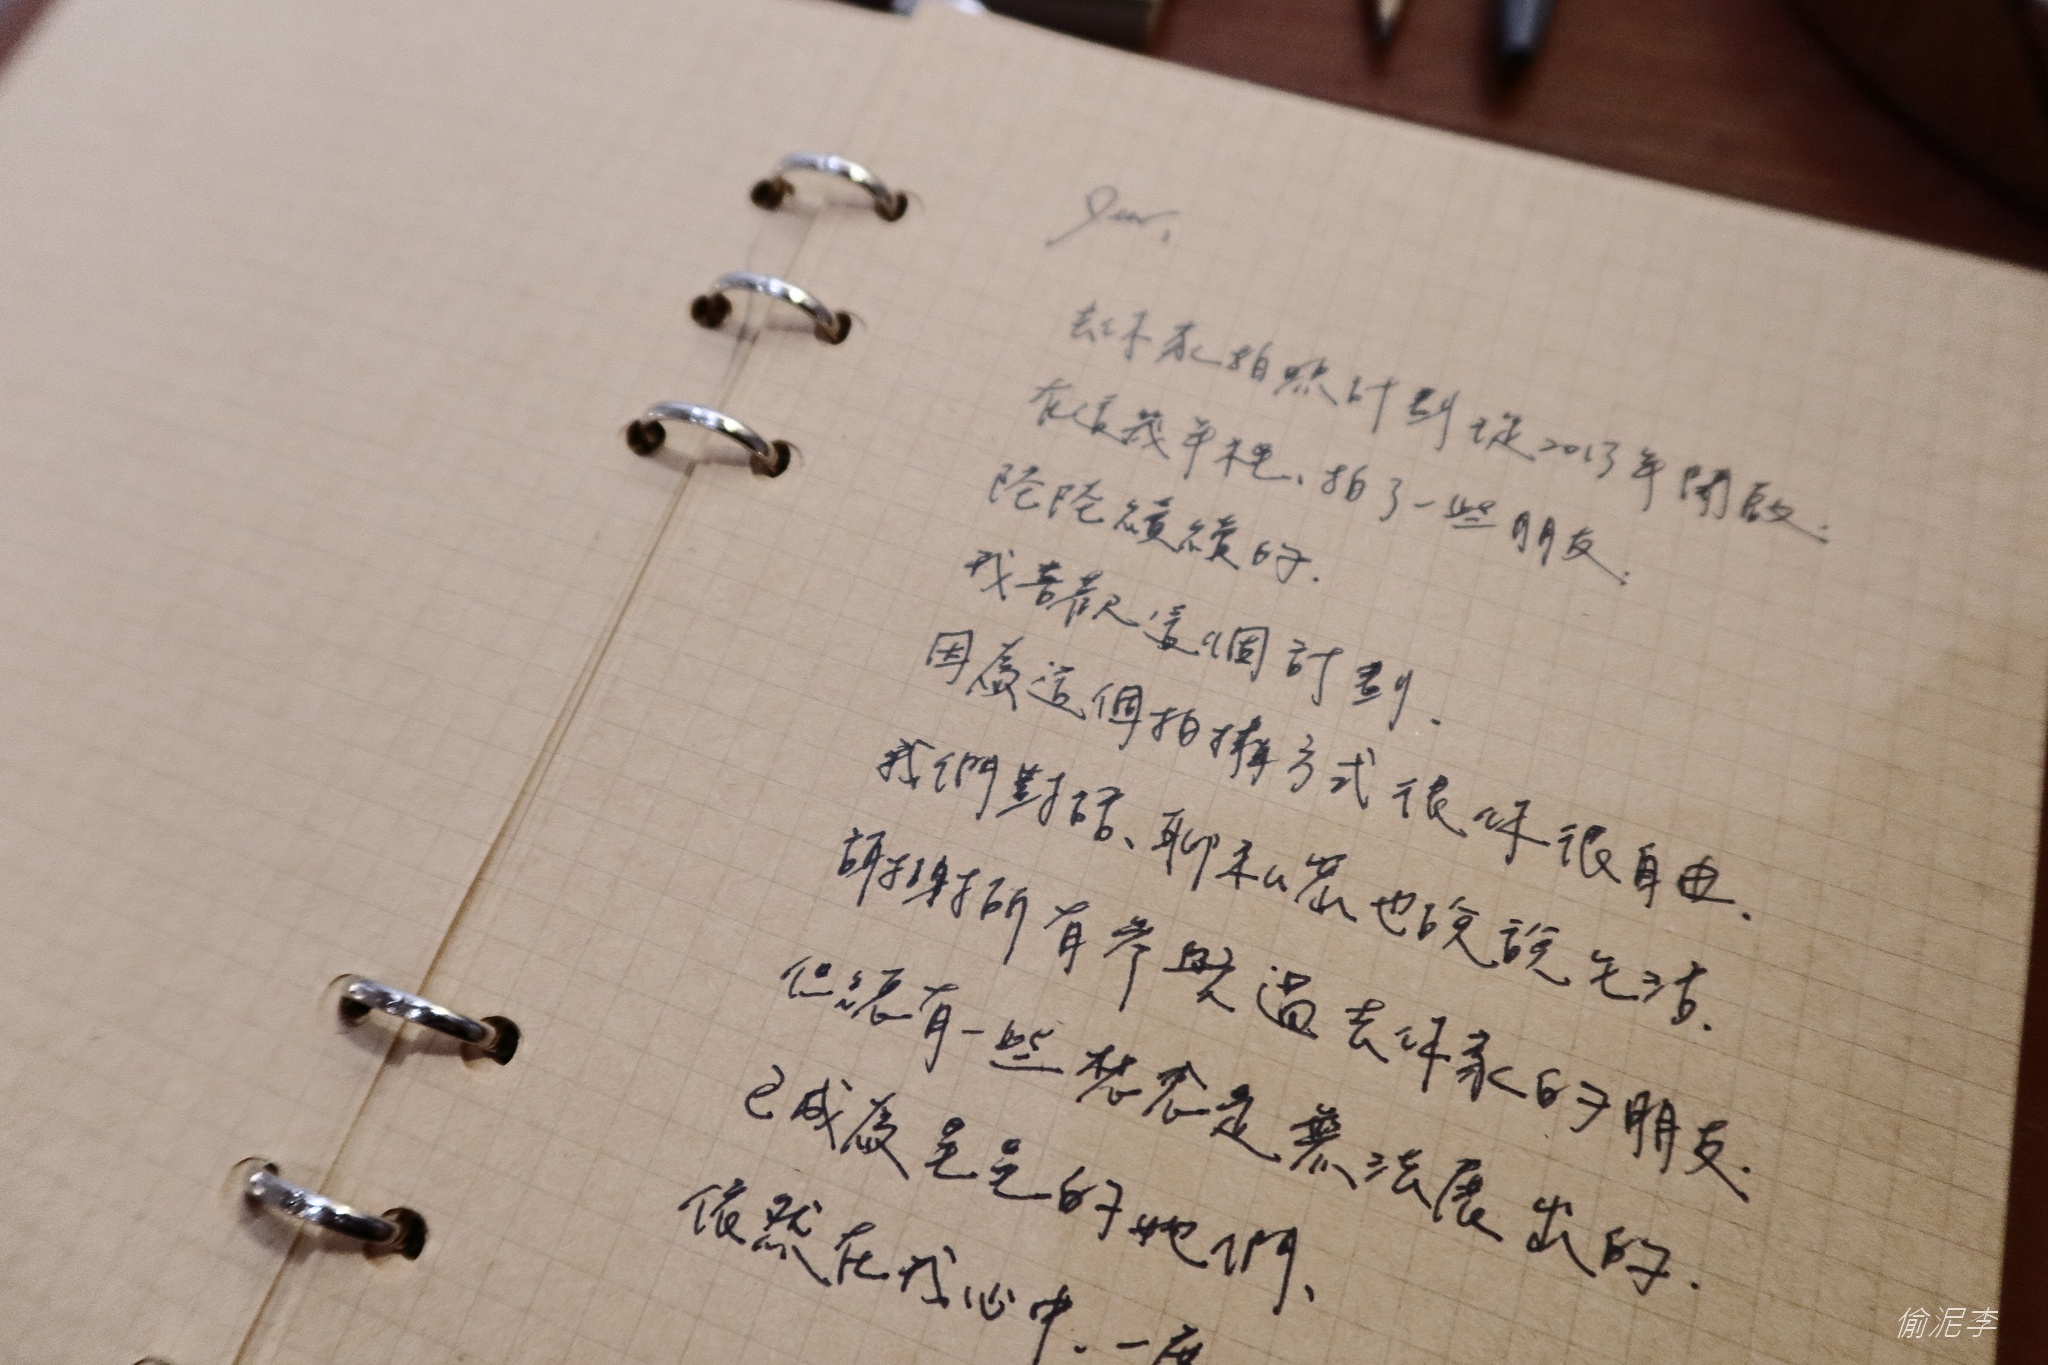 Dear,
去你家拍照計劃 從2013年開啟.
在這幾年裡、拍了一些朋友.
陸陸續續的.
我喜歡這個計劃.
因為這個拍攝方式很好很自由.
我們對話、聊私密也說說生活.
謝謝所有參與過去你家的朋友.
但總有一些想念是無法展出的.
已成為星星的她們、
依然在我心中.一度
偷泥李